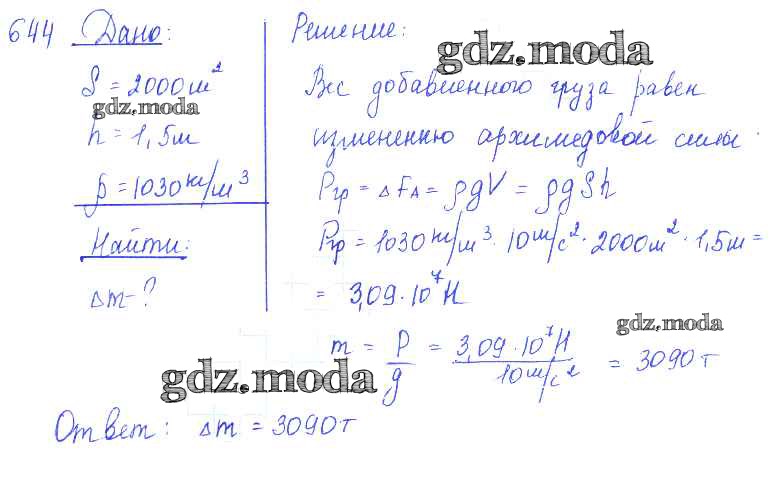 644 Дано:
S = 2000 м²
gdz.moda
h = 1,5 м
ρ = 1030 кг/м³
Найти:
Δm - ?
Решение:
gdz.moda
Вес добавленного груза равен
изменению архимедовой силы.
Pгр = ΔFA = ρgV = ρgSh
Pгр = 1030 кг/м³ · 10 м/с² · 2000 м² · 1,5 м =
= 3,09 · 10⁷ Н
gdz.moda
m = P/g = 3,09 · 10⁷ Н / 10 м/с² = 3090 т
gdz.moda
Ответ: Δm = 3090 т